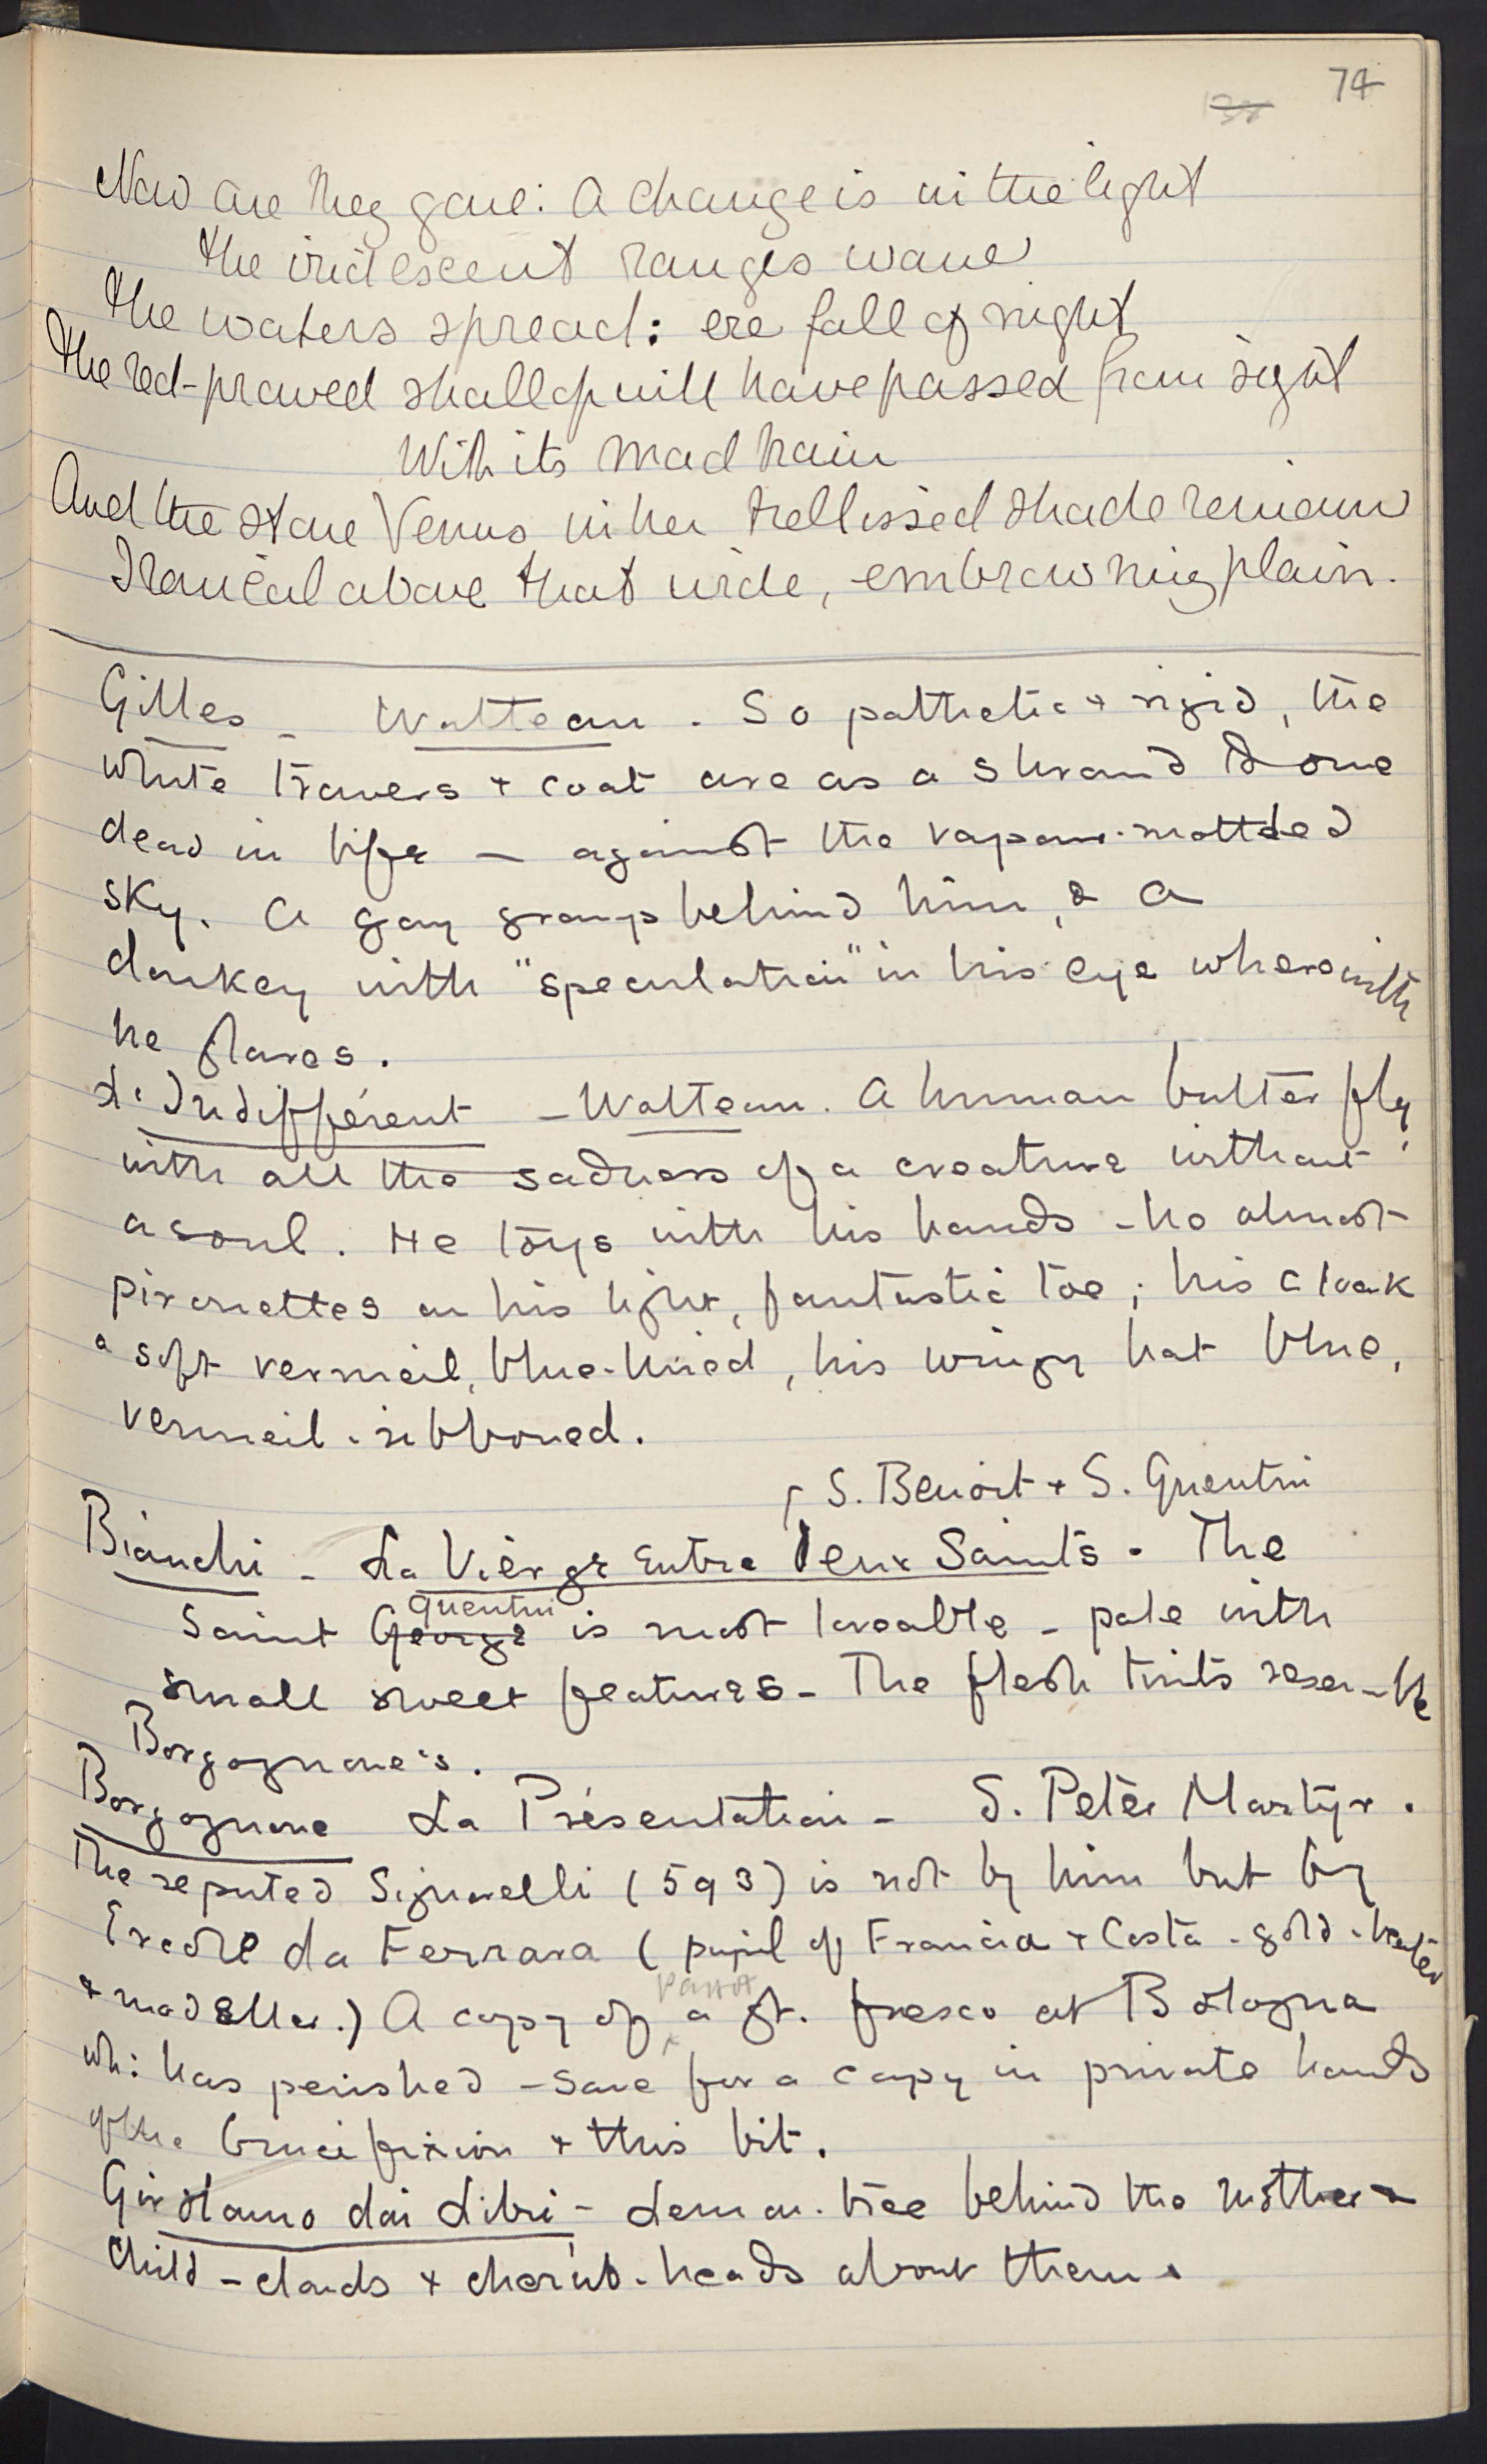 74
Now are they gone: A change is in the light
the iridescent ranges wane
the waters spread: ere fall of night
the red-prowed shallop will have passed from sight
With its mad train
And the stone Venus in her trellissed shade remain
Ironical above that wide, embrowning plain.
Gilles - Watteau. So pathetic & rigid, the
white trowers & coat are as a shroud to one
dead in life — against the vapour-mottled
sky. A gay group behind him, & a
donkey with "speculation" in his eye wherewith
he glares.
L'Indifférent - Watteau. A human butterfly
with all the sadness of a creature without
a soul. He toys with his hands - he almost
pirouettes on his light, fantastic toe; his cloak
a soft vermeil, blue-lined, his wingy hat blue,
vermeil-ribboned.
S. Benoit & S. Quentin
Bianchi - La Vierge Entre Deux Saints. The
Quentin
Saint George is most loveable - pale with
small sweet features - The flesh tints resemble
Borgognone's.
Borgognone La Présentation - S. Peter Martyr.
The reputed Signorelli (593) is not by him but by
Ercole da Ferrara (pupil of Francia & Costa - gold-beater
part
& modeller.) A copy of a gt. fresco at Bologna
wh: has perished - save for a copy in private hands
of the Crucifixion & this bit.
Girolamo dai Libri - Lemon-tree behind the mother &
Child - clouds & cherub-heads about them.